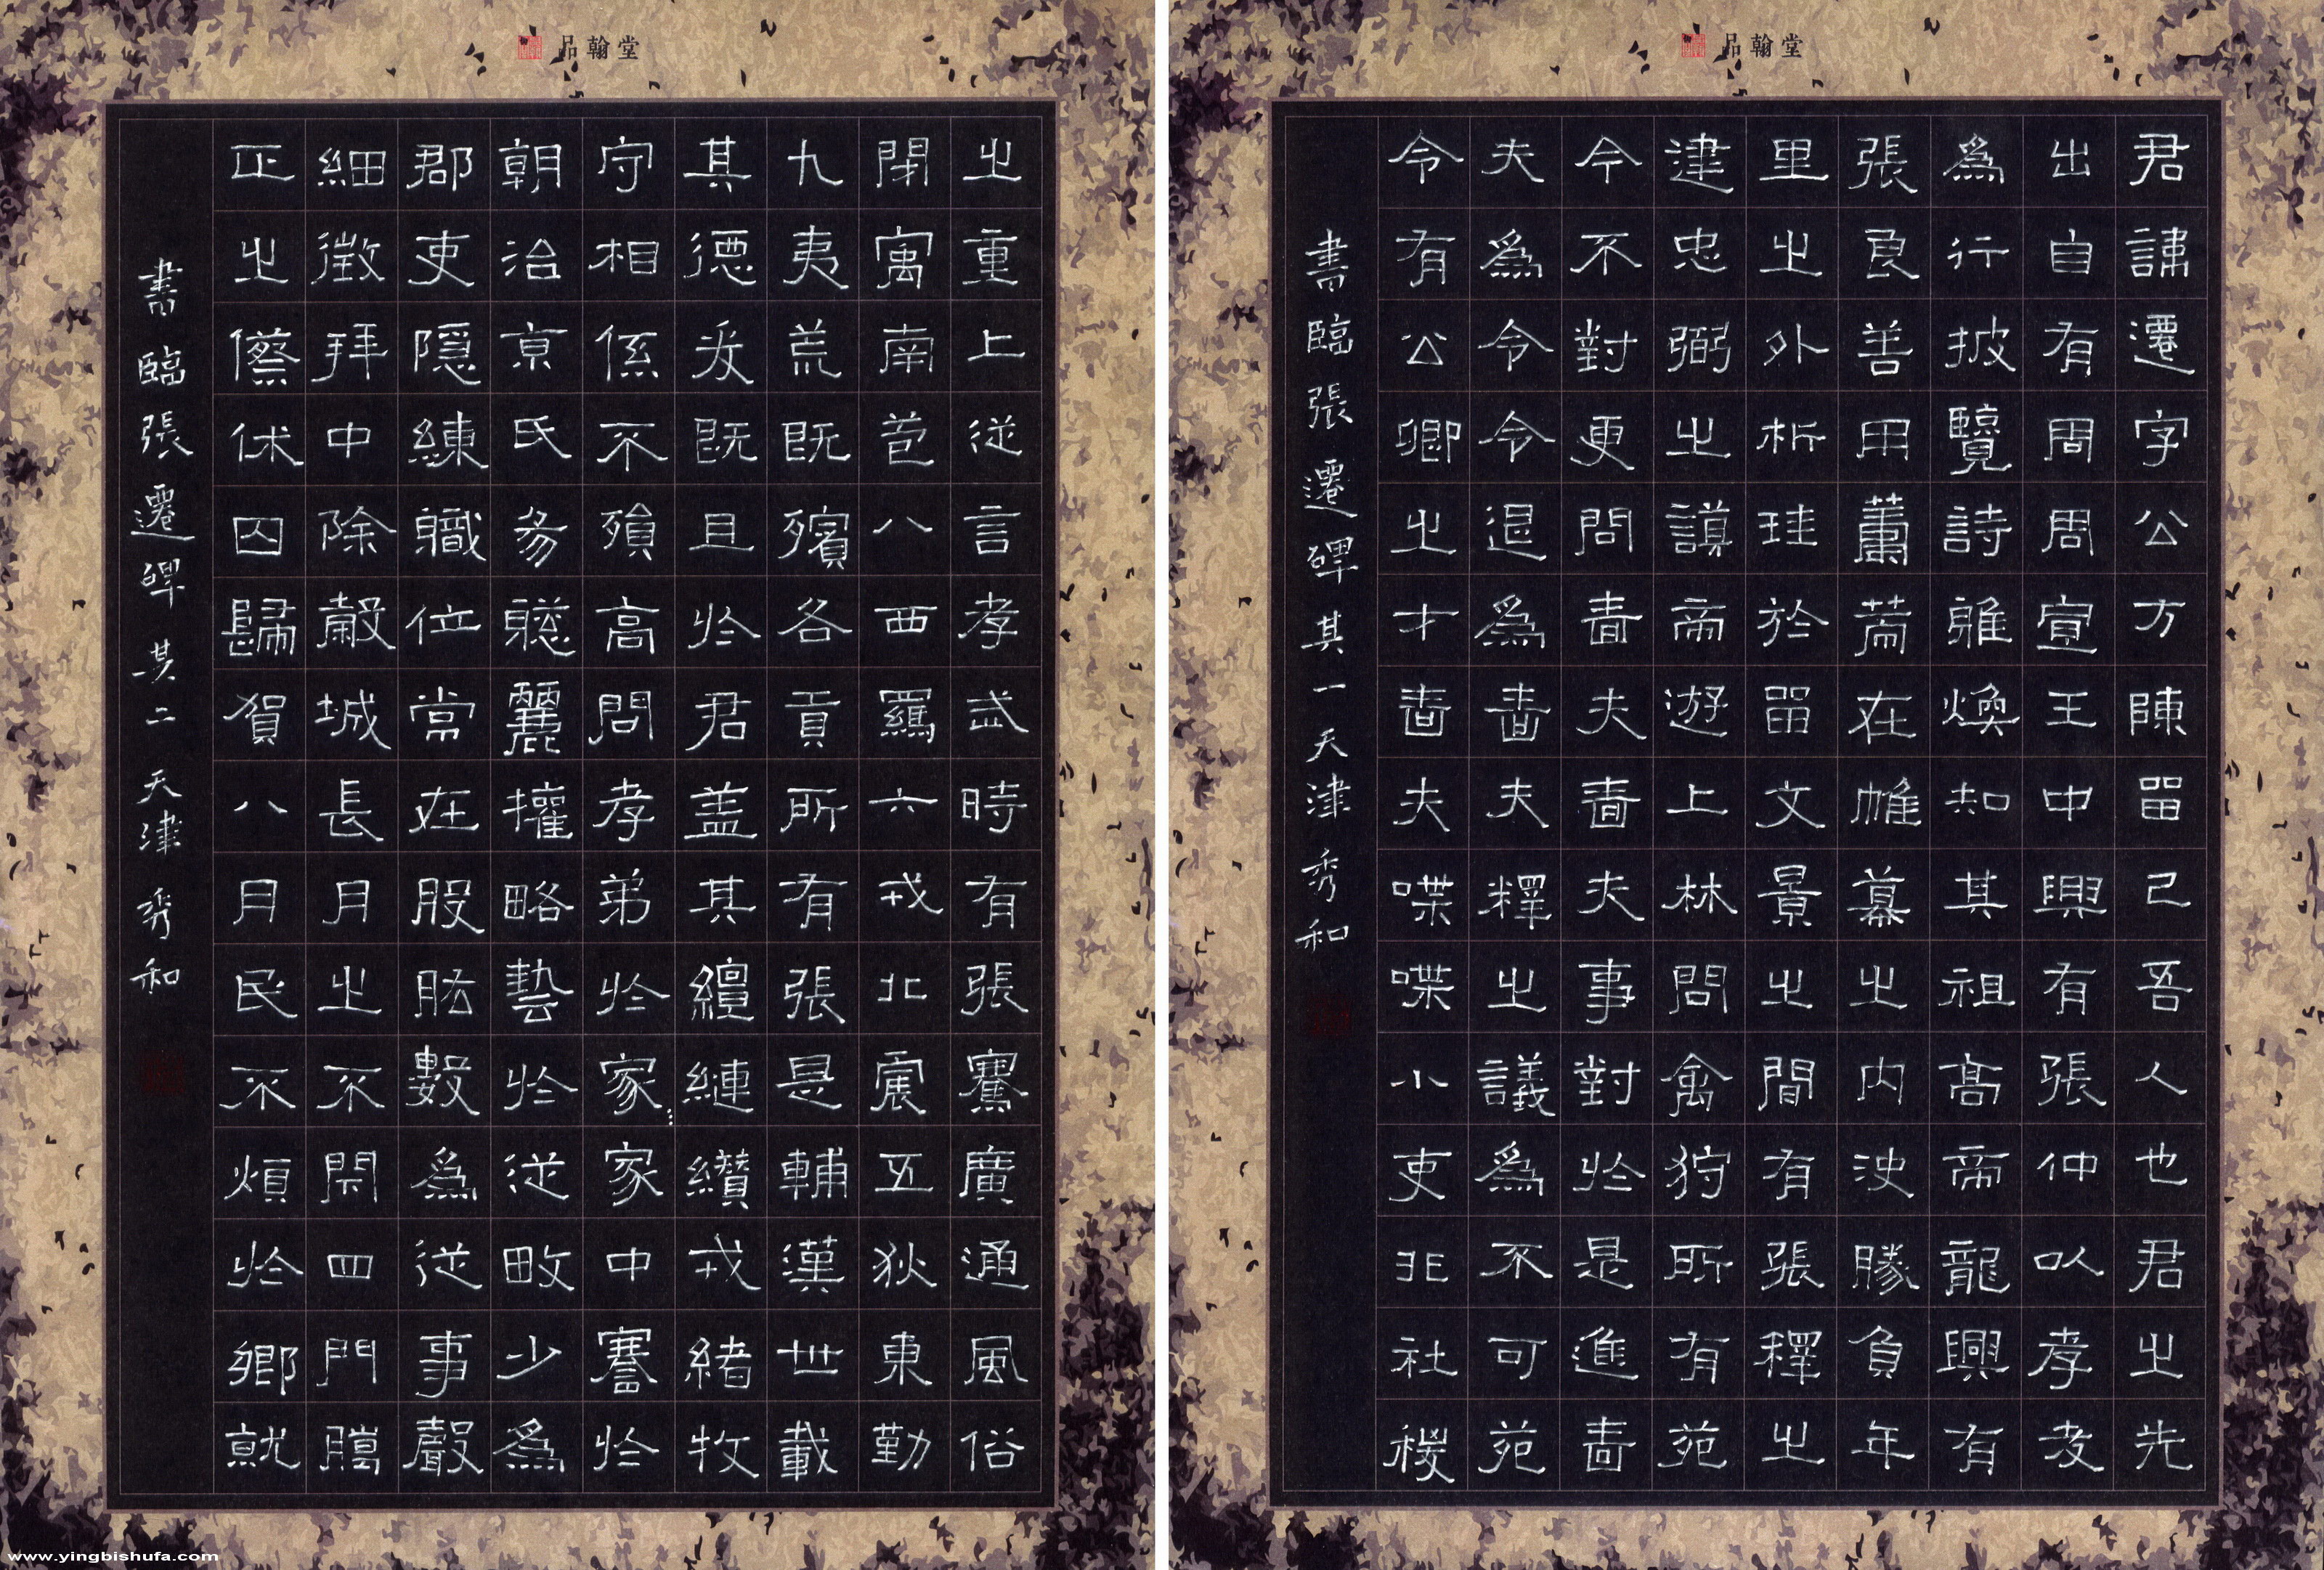 品翰堂
君諱遷字公方陳留己吾人也君之先
出自有周周宣王中興有張仲以孝友
為行披覽詩雅煥知其祖高帝龍興有
張良善用籌策在帷幕之內決勝負年
里之外析珪於留文景之間有張釋之
建忠弼之謨帝遊上林問禽狩所有苑
令不對更問嗇夫嗇夫事對於是進嗇
夫為令令退為嗇夫釋之議為不可苑
令有公卿之才嗇夫喋喋小吏非社稷
書臨張遷碑其一天津秀和
品翰堂
之重上從言孝武時有張騫廣通風俗
開㝢南苞八西羈六戎北震五狄東勤
九夷荒既殯各貢所有張是輔漢世載
其德爰既且於君蓋其繵縺纘戎緒牧
守相係不殞高問孝弟於家家中謇於
朝治京氏易聰麗權略藝於從畋少為
郡吏隱練職位常在股肱數為從事聲
細徵拜中除穀城長月之不閉四門臘
正之僚休囚歸賀八月民不煩於鄉就
書臨張遷碑其二天津秀和
www.yingbishufa.com